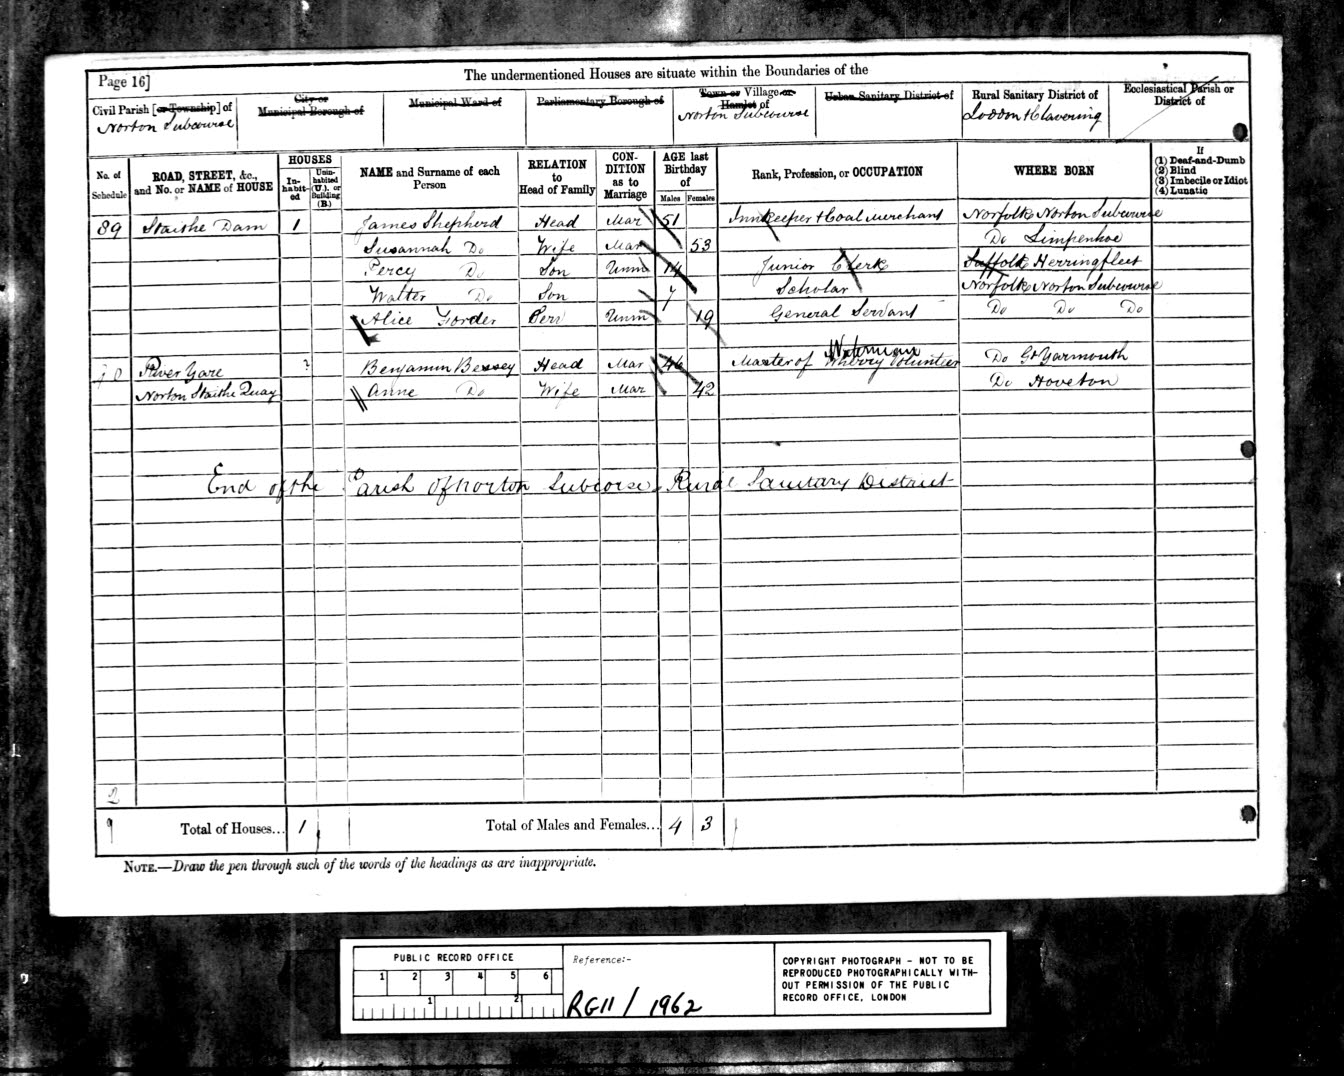 Page 16]
The undermentioned Houses are situate within the Boundaries of the
Civil Parish [or Township] of
Norton Subcourse
City or
Municipal Borough of
Municipal Ward of
Parliamentary Borough of
Town or Village or
Hamlet of
Norton Subcourse
Urban Sanitary District of
Rural Sanitary District of
Loddon & Clavering
Ecclesiastical Parish or
District of
No. of
Schedule
ROAD, STREET, &c.,
and No. or NAME of HOUSE
HOUSES
In-
habit-
ed
Unin-
habited
(U.), or
Building
(B.)
NAME and Surname of each
Person
RELATION
to
Head of Family
CON-
DITION
as to
Marriage
AGE last
Birthday
of
Males Females
Rank, Profession, or OCCUPATION
WHERE BORN
If
(1) Deaf-and-Dumb
(2) Blind
(3) Imbecile or Idiot
(4) Lunatic
89 Staithe Dam 1 James Shepherd Head Mar 51 Innkeeper & Coal Merchant Norfolk Norton Subcourse
Susannah Do Wife Mar 53 Do Limpenhoe
Percy Do Son Unm 14 Junior Clerk Suffolk Herringfleet
Walter Do Son 7 Scholar Norfolk Norton Subcourse
Alice Forder Serv Unm 19 General Servant Do Do Do
Waterman
River Yare Benjamin Bessey Head Mar 46 Master of Wherry Volunteer Do Gt Yarmouth
Norton Staithe Quay Anne Do Wife Mar 42 Do Hoveton
End of the Parish of Norton Subcorse Rural Sanitary District
2
9 Total of Houses... 1 Total of Males and Females... 4 3
NOTE.—Draw the pen through such of the words of the headings as are inappropriate.
PUBLIC RECORD OFFICE
1 2 3 4 5 6
1 2
Reference:-
RG11 / 1962
COPYRIGHT PHOTOGRAPH - NOT TO BE
REPRODUCED PHOTOGRAPHICALLY WITH-
OUT PERMISSION OF THE PUBLIC
RECORD OFFICE, LONDON